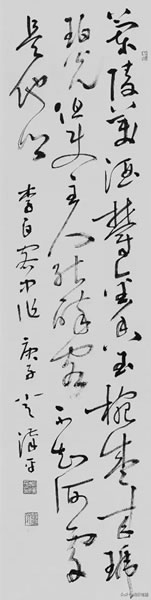 蘭陵美酒鬱金香玉椀盛來琥
珀光但使主人能醉客不知何處
是他鄉
李白客中作 庚子